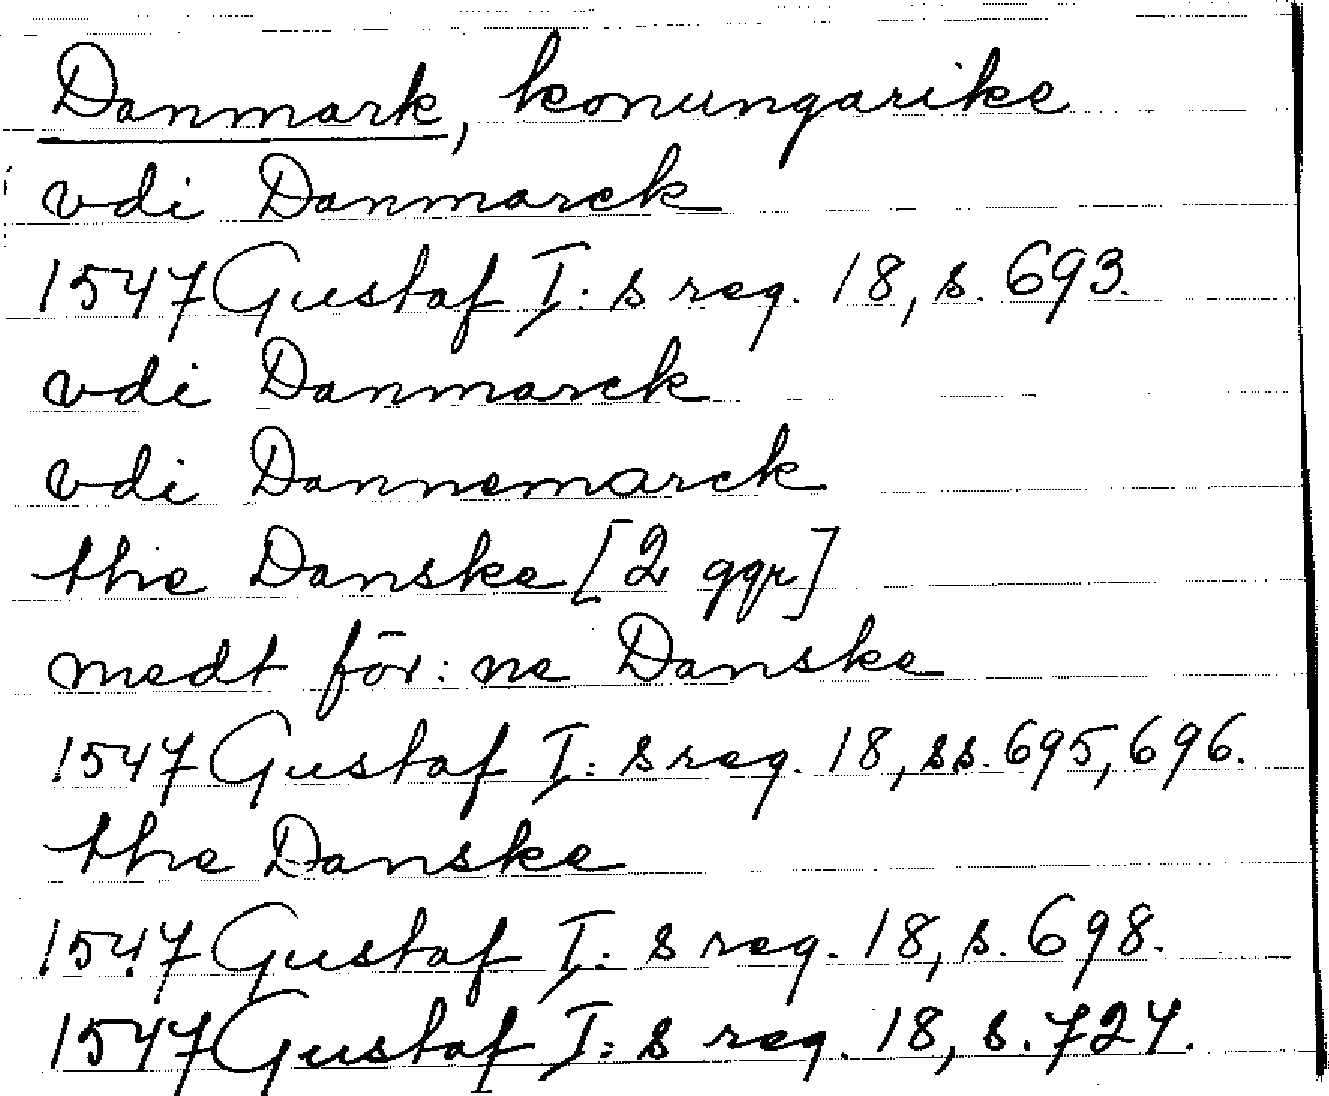 Danmark, konungarike
vdi Danmarck
1547 Gustaf I: s reg. 18, s. 693.
vdi Danmarck
vdi Dannemarck
the Danske [2 ggr]
medt för: ne Danske
1547 Gustaf I: s reg. 18, ss. 695, 696.
the Danske
1547 Gustaf I: s reg. 18, s. 698.
1547 Gustaf I: s reg. 18, s. 724.